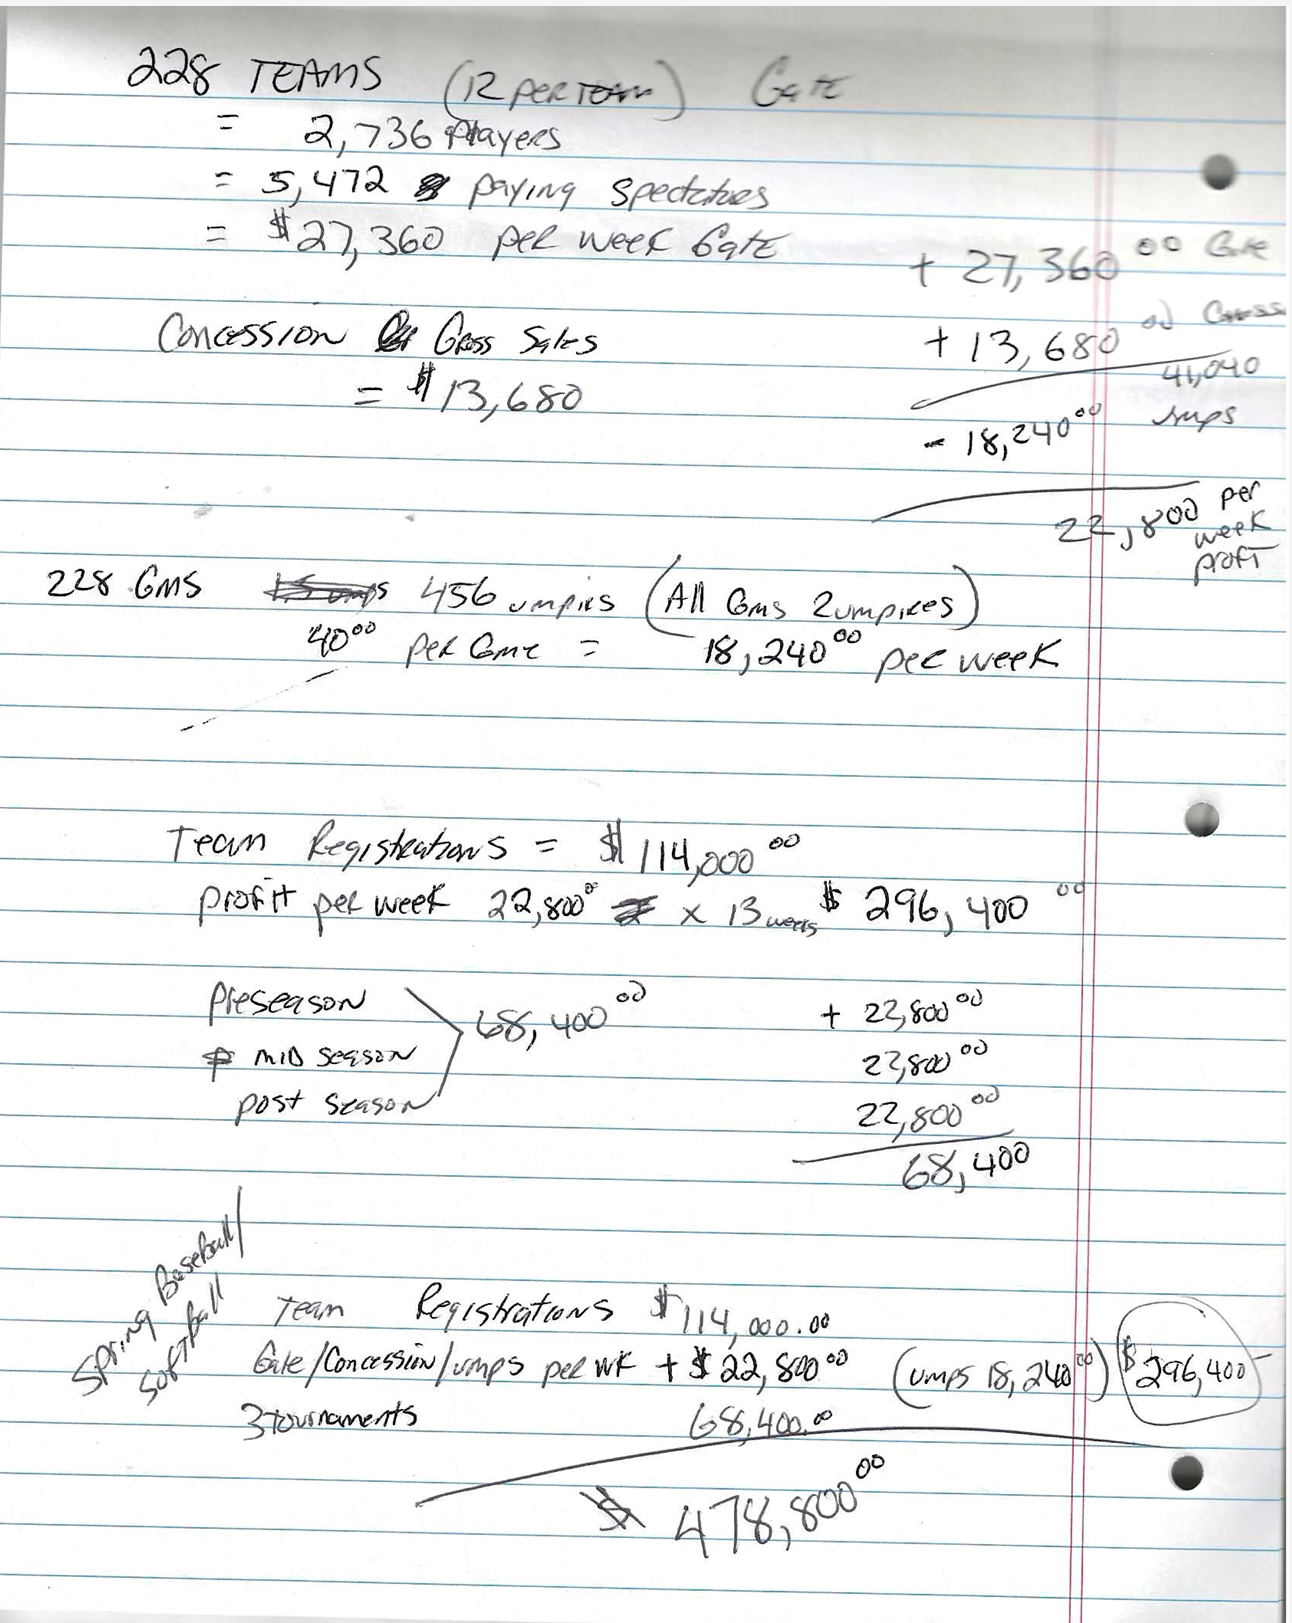 228 TEAMS (12 PER TEAM) Gate
= 2,736 Players
= 5,472 paying Spectators
= $27,360 per week Gate
+ 27,360 00 Gate
Concession Gross Sales
+ 13,680 00
= $13,680
41,040
- 18,240 00 umps
22,800 per
week
profit
228 Gms 456 umpires (All Gms 2 umpires)
40 00 per Game = 18,240 00 per week
Team Registrations = $114,000 00
profit per week 22,800 x 13 weeks $ 296,400 00
Preseason 68,400 00 + 22,800 00
MID Season 22,800 00
post Season 22,800 00
68,400
Spring Baseball/
Softball
Team Registrations $114,000.00
Gate/Concession/umps per wk + $22,800 00 (umps 18,240 00) $296,400
3 tournaments 68,400.00
$ 478,800 00